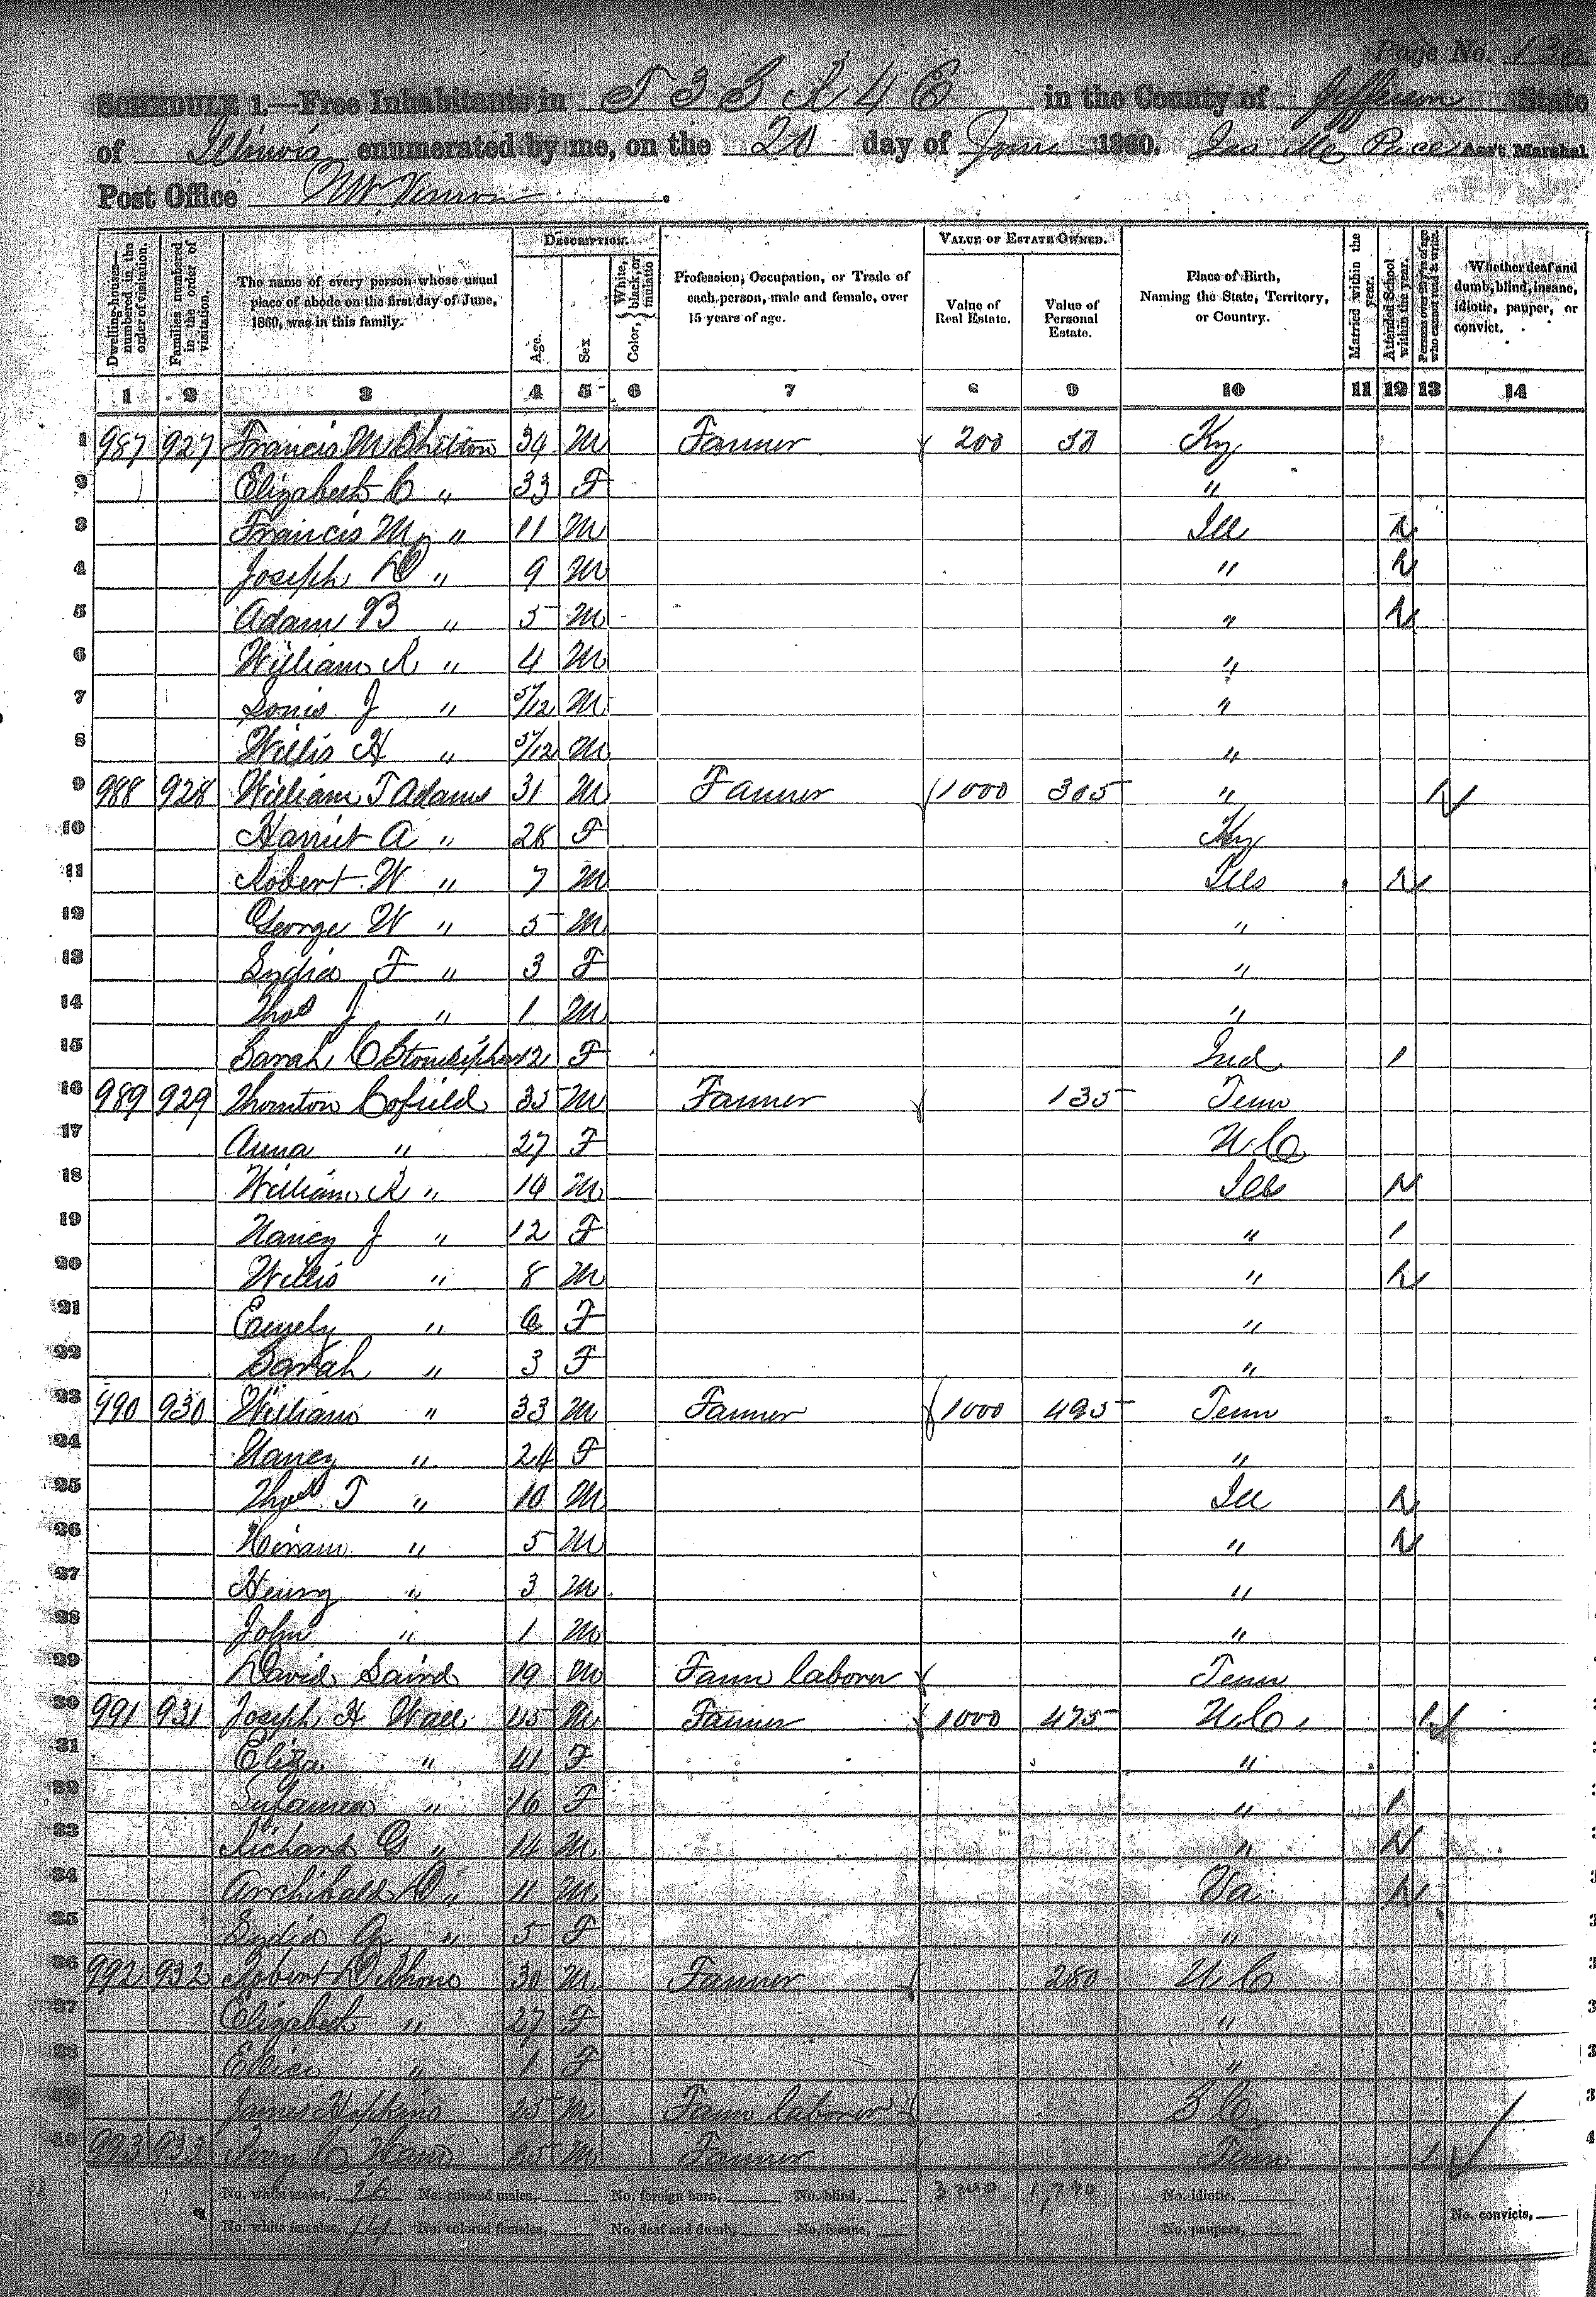 Page No. 136
SCHEDULE 1.—Free Inhabitants in T 3 S R 4 E in the County of Jefferson State
of Illinois enumerated by me, on the 20 day of June 1860. Ass't Marshal
Post Office Mt. Vernon.
DESCRIPTION. VALUE OF ESTATE OWNED.
Dwelling-houses—numbered in the order of visitation. Families numbered in the order of visitation. The name of every person whose usual place of abode on the first day of June, 1860, was in this family. Age. Sex Color, White, black, or mulatto Profession, Occupation, or Trade of each person, male and female, over 15 years of age. Value of Real Estate. Value of Personal Estate. Place of Birth, Naming the State, Territory, or Country. Married within the year. Attended School within the year. Persons over 20 y'rs of age who cannot read & write. Whether deaf and dumb, blind, insane, idiotic, pauper, or convict.
1 2 3 4 5 6 7 8 9 10 11 12 13 14
1 987 927 Francis M Shelton 34 M Farmer 200 50 Ky
2 Elizabeth C " 33 F "
3 Francis M " 11 M Ill
4 Joseph D " 9 M "
5 Adam B " 5 M "
6 William R " 4 M "
7 J " 5/12 M "
8 Willis H " 5/12 M "
9 988 928 William T Adams 31 M Farmer 1000 305 "
10 Harriet A " 28 F Ky
11 Robert W " 7 M Ills
12 George W " 5 M "
13 Lydia F " 3 F "
14 Thos J " 1 M "
15 Sarah C 12 F Ind 1
16 989 929 Thornton Cofield 35 M Farmer 135 Tenn
17 Anna " 27 F N.C.
18 William R " 14 M Ill
19 Nancy J " 12 F " 1
20 Willis " 8 M "
21 Emely " 6 F "
22 Sarah " 3 F "
23 990 930 William " 33 M Farmer 1000 495 Tenn
24 Nancy " 24 F "
25 Thos T " 10 M Ill
26 Hiram " 5 M "
27 Henry " 3 M "
28 John " 1 M "
29 David 19 M Farm laborer Tenn
30 991 931 Joseph H Wall 45 M Farmer 1000 475 N.C.
31 Eliza " 41 F "
32 " 16 F " 1
33 Richard G " 14 M "
34 Archibald D " 11 M Va
35 Lydia A " 5 F "
36 992 932 Robert D 30 M Farmer 280 N C
37 Elizabeth " 27 F "
38 " 1 F "
39 James Hopkins 25 M Farm laborer S C
40 993 933 35 M Farmer Tenn
No. white males, 26 No. colored males, No. foreign born, No. blind, 3200 1,740 No. idiotic, No. convicts,
No. white females, 14 No. colored females, No. deaf and dumb, No. insane, No. paupers,